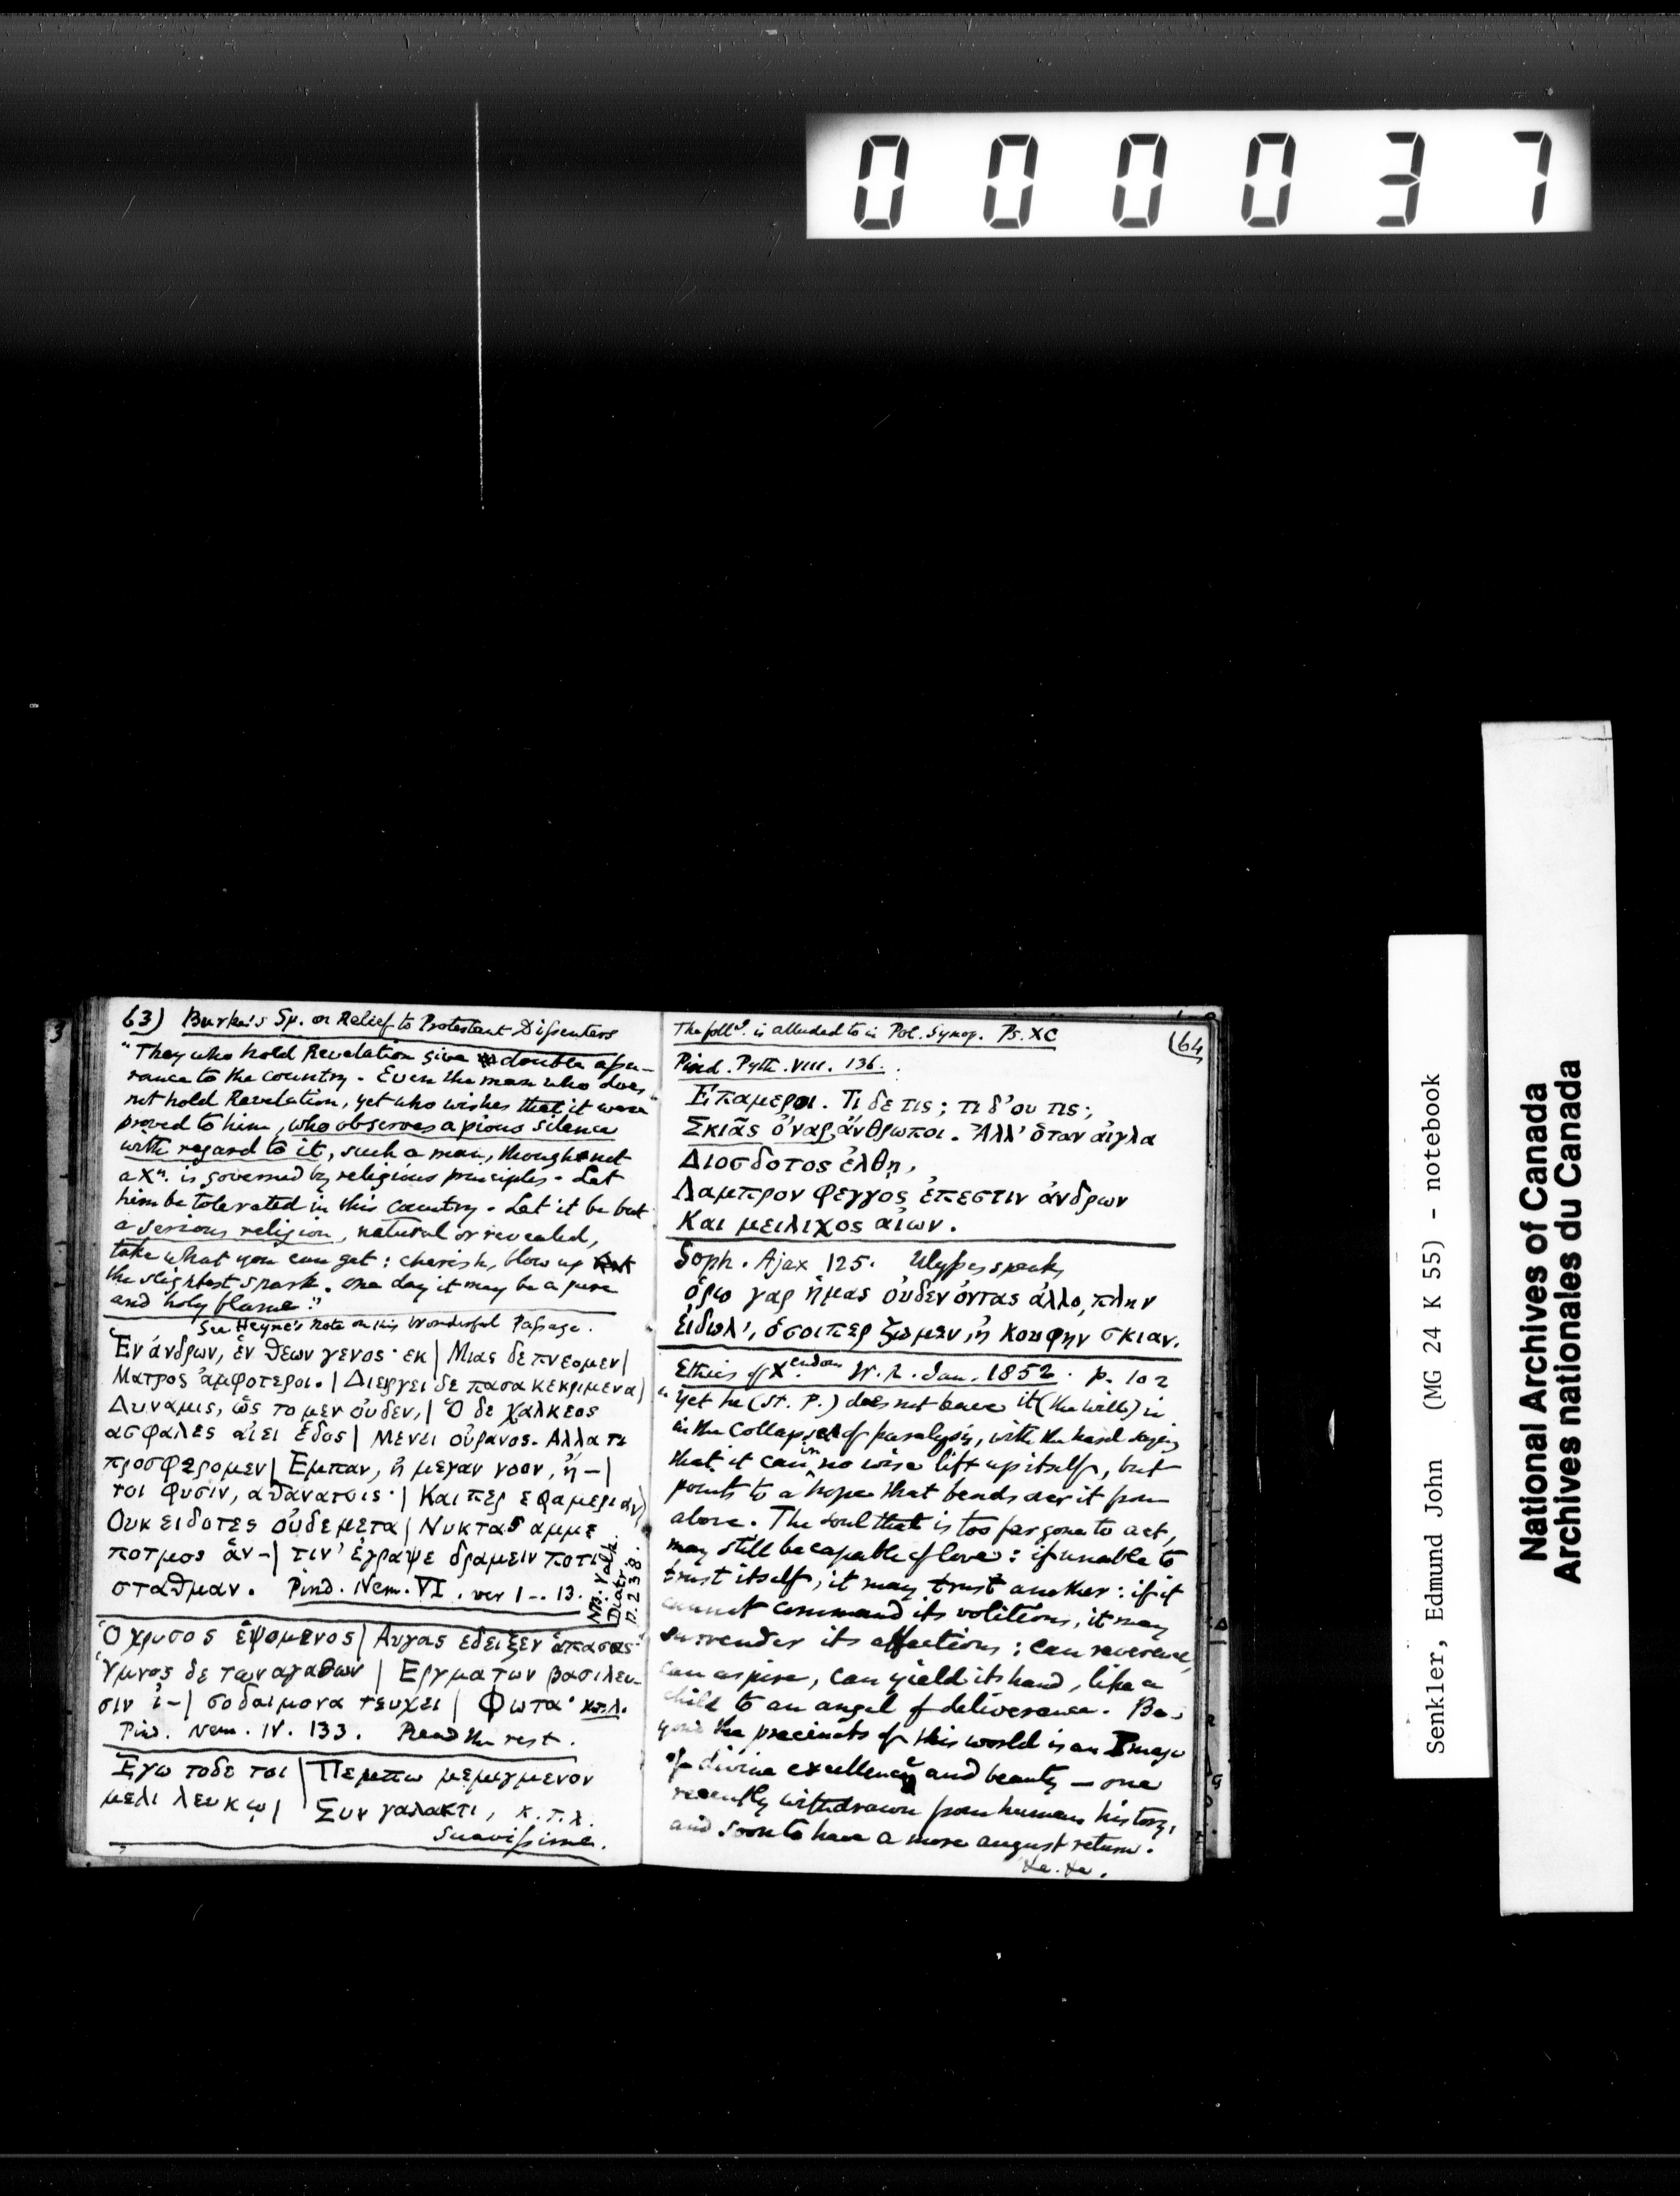 000037
63) Burke's Sp. on Relief to Protestant Dissenters
"They who hold Revelation give double assu-
rance to the country. Even the man who does
not hold Revelation, yet who wishes that it were
proved to him, who observes a pious silence
with regard to it, such a man, though not
a Xn. is governed by religious principles. Let
him be tolerated in this country. Let it be but
a serious religion, natural or revealed,
take what you can get: cherish, blow up
the slightest spark. One day it may be a pure
and holy flame."
See Heyne's note on this wonderful Passage.
Ἑν ἀνδρων, ἑν θεων γενος· εκ | Μιας δε πνεομεν |
Ματρος ἀμφοτεροι. | Διεργει δε πασα κεκριμενα |
Δυναμις, ὡς το μεν οὐδεν, | Ὁ δε χαλκεος
ασφαλες αἰει ἑδος | Μενει οὐρανος. Αλλα τι
προσφερομεν | Εμπαν, ἠ μεγαν νοον, ἠ-|
τοι φυσιν, αθανατοις· | Και περ εφαμεριαν |
Ουκ ειδοτες οὐδε μετα | Νυκτας αμμε
ποτμος ἁν-| τιν' ἐγραψε δραμειν ποτι
σταθμαν. Pind. Nem. VI. ver 1--13.
NB. Valk.
Diatr.
p. 238.
Ὁ χρυσος ἑψομενος | Αυγας εδειξεν ἁπασας·
Ὑμνος δε των αγαθων | Εργματων βασιλευ-
σιν ἰ-| σοδαιμονα τευχει | Φωτα· κτλ.
Pind. Nem. IV. 133. Read the rest.
Εγω τοδε τοι | Πεμπω μεμιγμενον
μελι λευκῳ | Συν γαλακτι, κ.τ.λ.
Suavissime.
(64
The follg. is alluded to in Pol. Synop. Ps. XC
Pind. Pyth. VIII. 136.
Επαμεροι. Τι δε τις; τι δ' ου τις;
Σκιᾶς ὀναρ ἀνθρωποι. Ἀλλ' ὁταν αἰγλα
Διοσδοτος ἐλθῃ,
Λαμπρον φεγγος ἐπεστιν ἀνδρων
Και μειλιχος αἰων.
Soph. Ajax 125. Ulysses speaks
ὁρω γαρ ἡμας οὐδεν ὀντας ἀλλο, πλην
εἰδωλ', ὁσοιπερ ζωμεν, ἠ κουφην σκιαν.
Ethics of Xendom W. R. Jan. 1852. p. 102
"Yet he (St. P.) does not leave it (the will) in
in the collapse of paralysis, with the hard saying
that it can in no wise lift up itself, but
points to a hope that bends over it from
above. The soul that is too far gone to act,
may still be capable of love: if unable to
trust itself, it may trust another: if it
cannot command its volitions, it may
surrender its affections: can reverence,
can aspire, can yield its hand, like a
child to an angel of deliverance. Be-
yond the precincts of this world is an Image
of divine excellence and beauty — one
recently withdrawn from human history,
and soon to have a more august return.
&c. &c.
Senkler, Edmund John (MG 24 K 55) - notebook
National Archives of Canada
Archives nationales du Canada